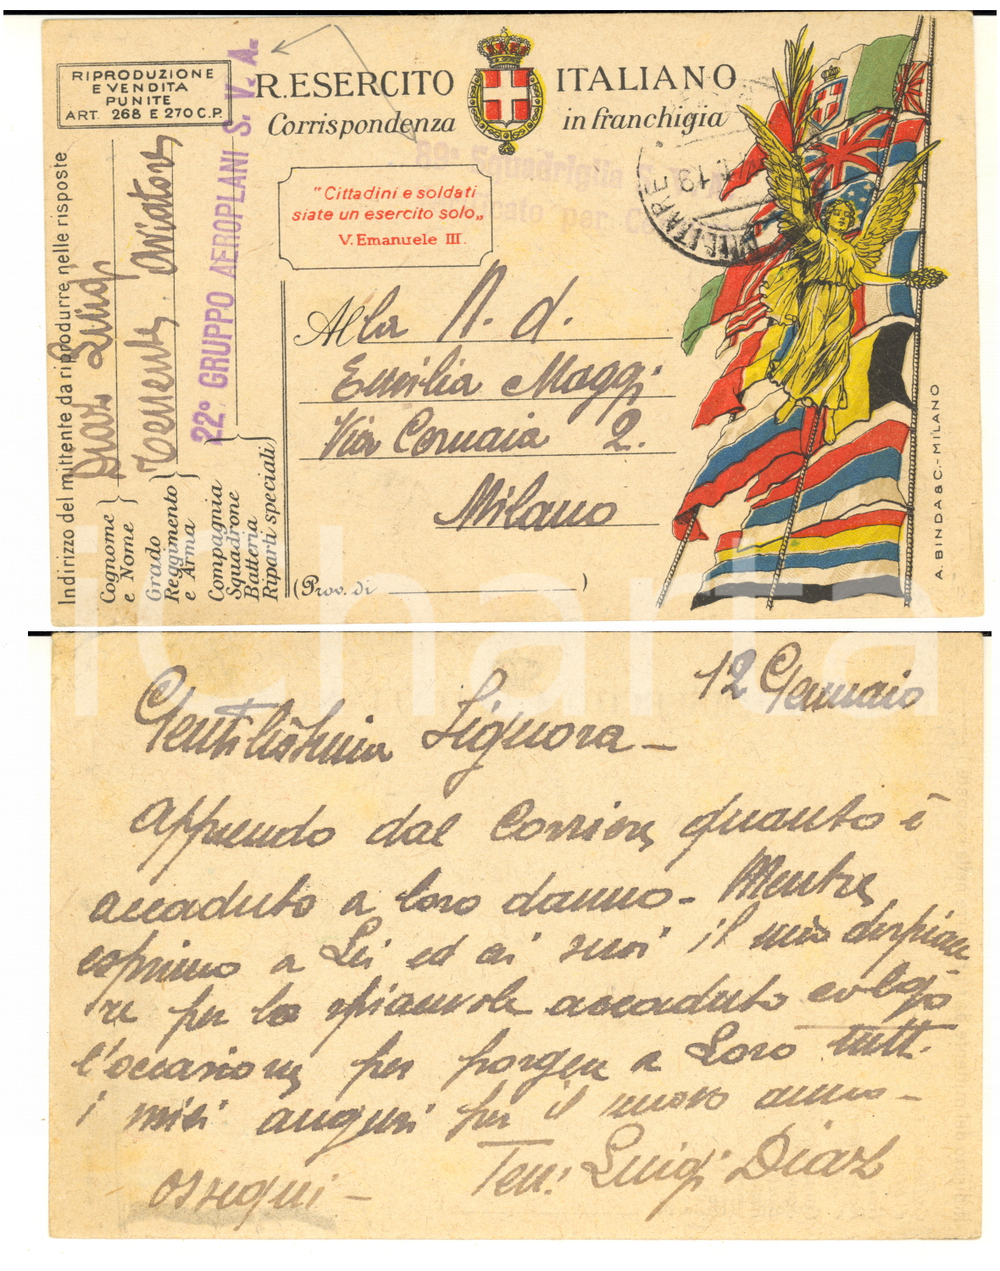 RIPRODUZIONE
E VENDITA
PUNITE
ART. 268 E 270 C.P.
R. ESERCITO ITALIANO
Corrispondenza in franchigia
"Cittadini e soldati
siate un esercito solo„
V. Emanuele III.
Squadriglia
per
MILITARE
Alla N. d.
Emilia Maggi
Via Cornaia 2.
Milano
(Prov. di )
Indirizzo del mittente da riprodurre nelle risposte
Cognome
e Nome
Diaz Luigi
Grado
Reggimento
e Arma
Tenente Aviatore
Compagnia
Squadrone
Batteria
Riparti speciali
22° GRUPPO AEROPLANI S. V. A.
A. BINDA & C. - MILANO
iCharta
12 Gennaio
Gentilissima Signora -
Apprendo dal Corriere quanto è
accaduto a loro danno - Mentre
esprimo a Lei ed ai suoi il mio dispiace
re per lo spiacevole accaduto colgo
l'occasione per porgere a Loro tutti
i miei auguri per il nuovo anno -
ossequi - Ten. Luigi Diaz